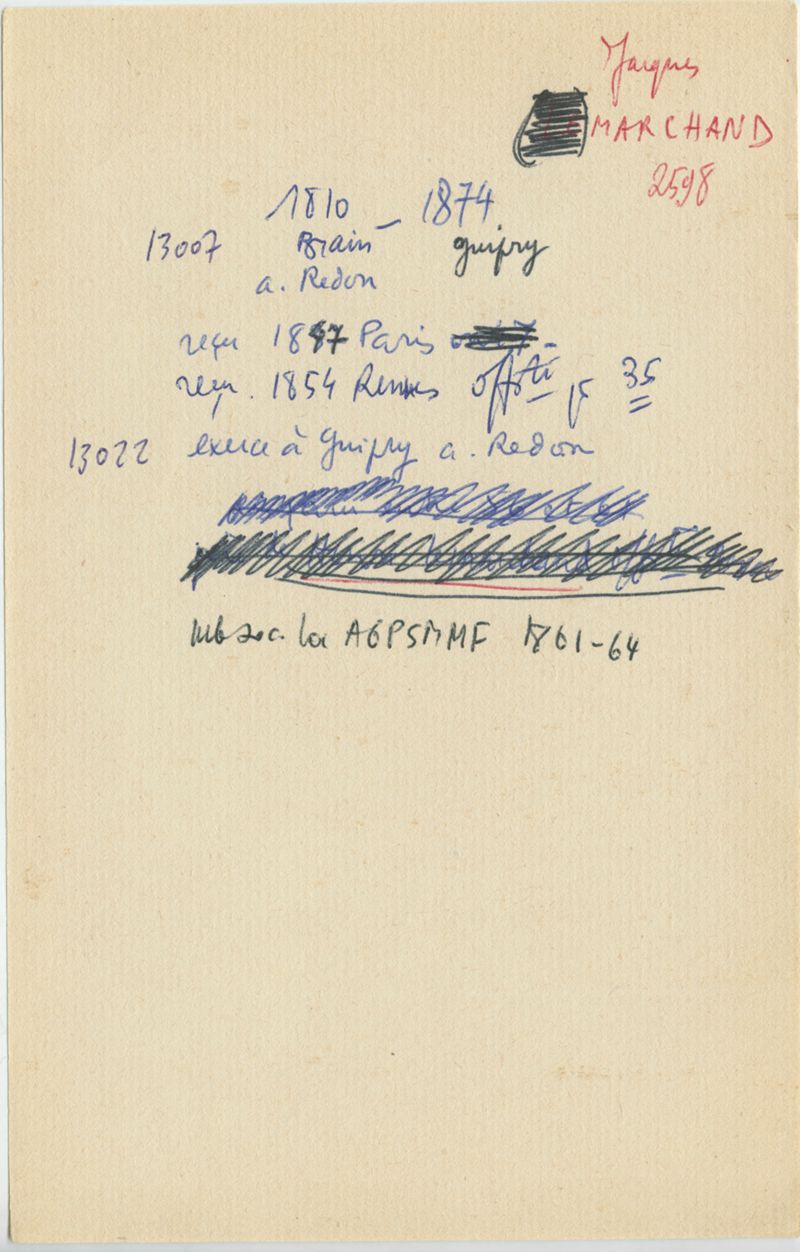 Jacques
MARCHAND
2598
1810 - 1874
13007 Brain Guipry
a. Redon
reçu 1847 Paris
reçu. 1854 Rennes off 35
13022 exerce à Guipry a. Redon
la AGPSMMF 1861-64